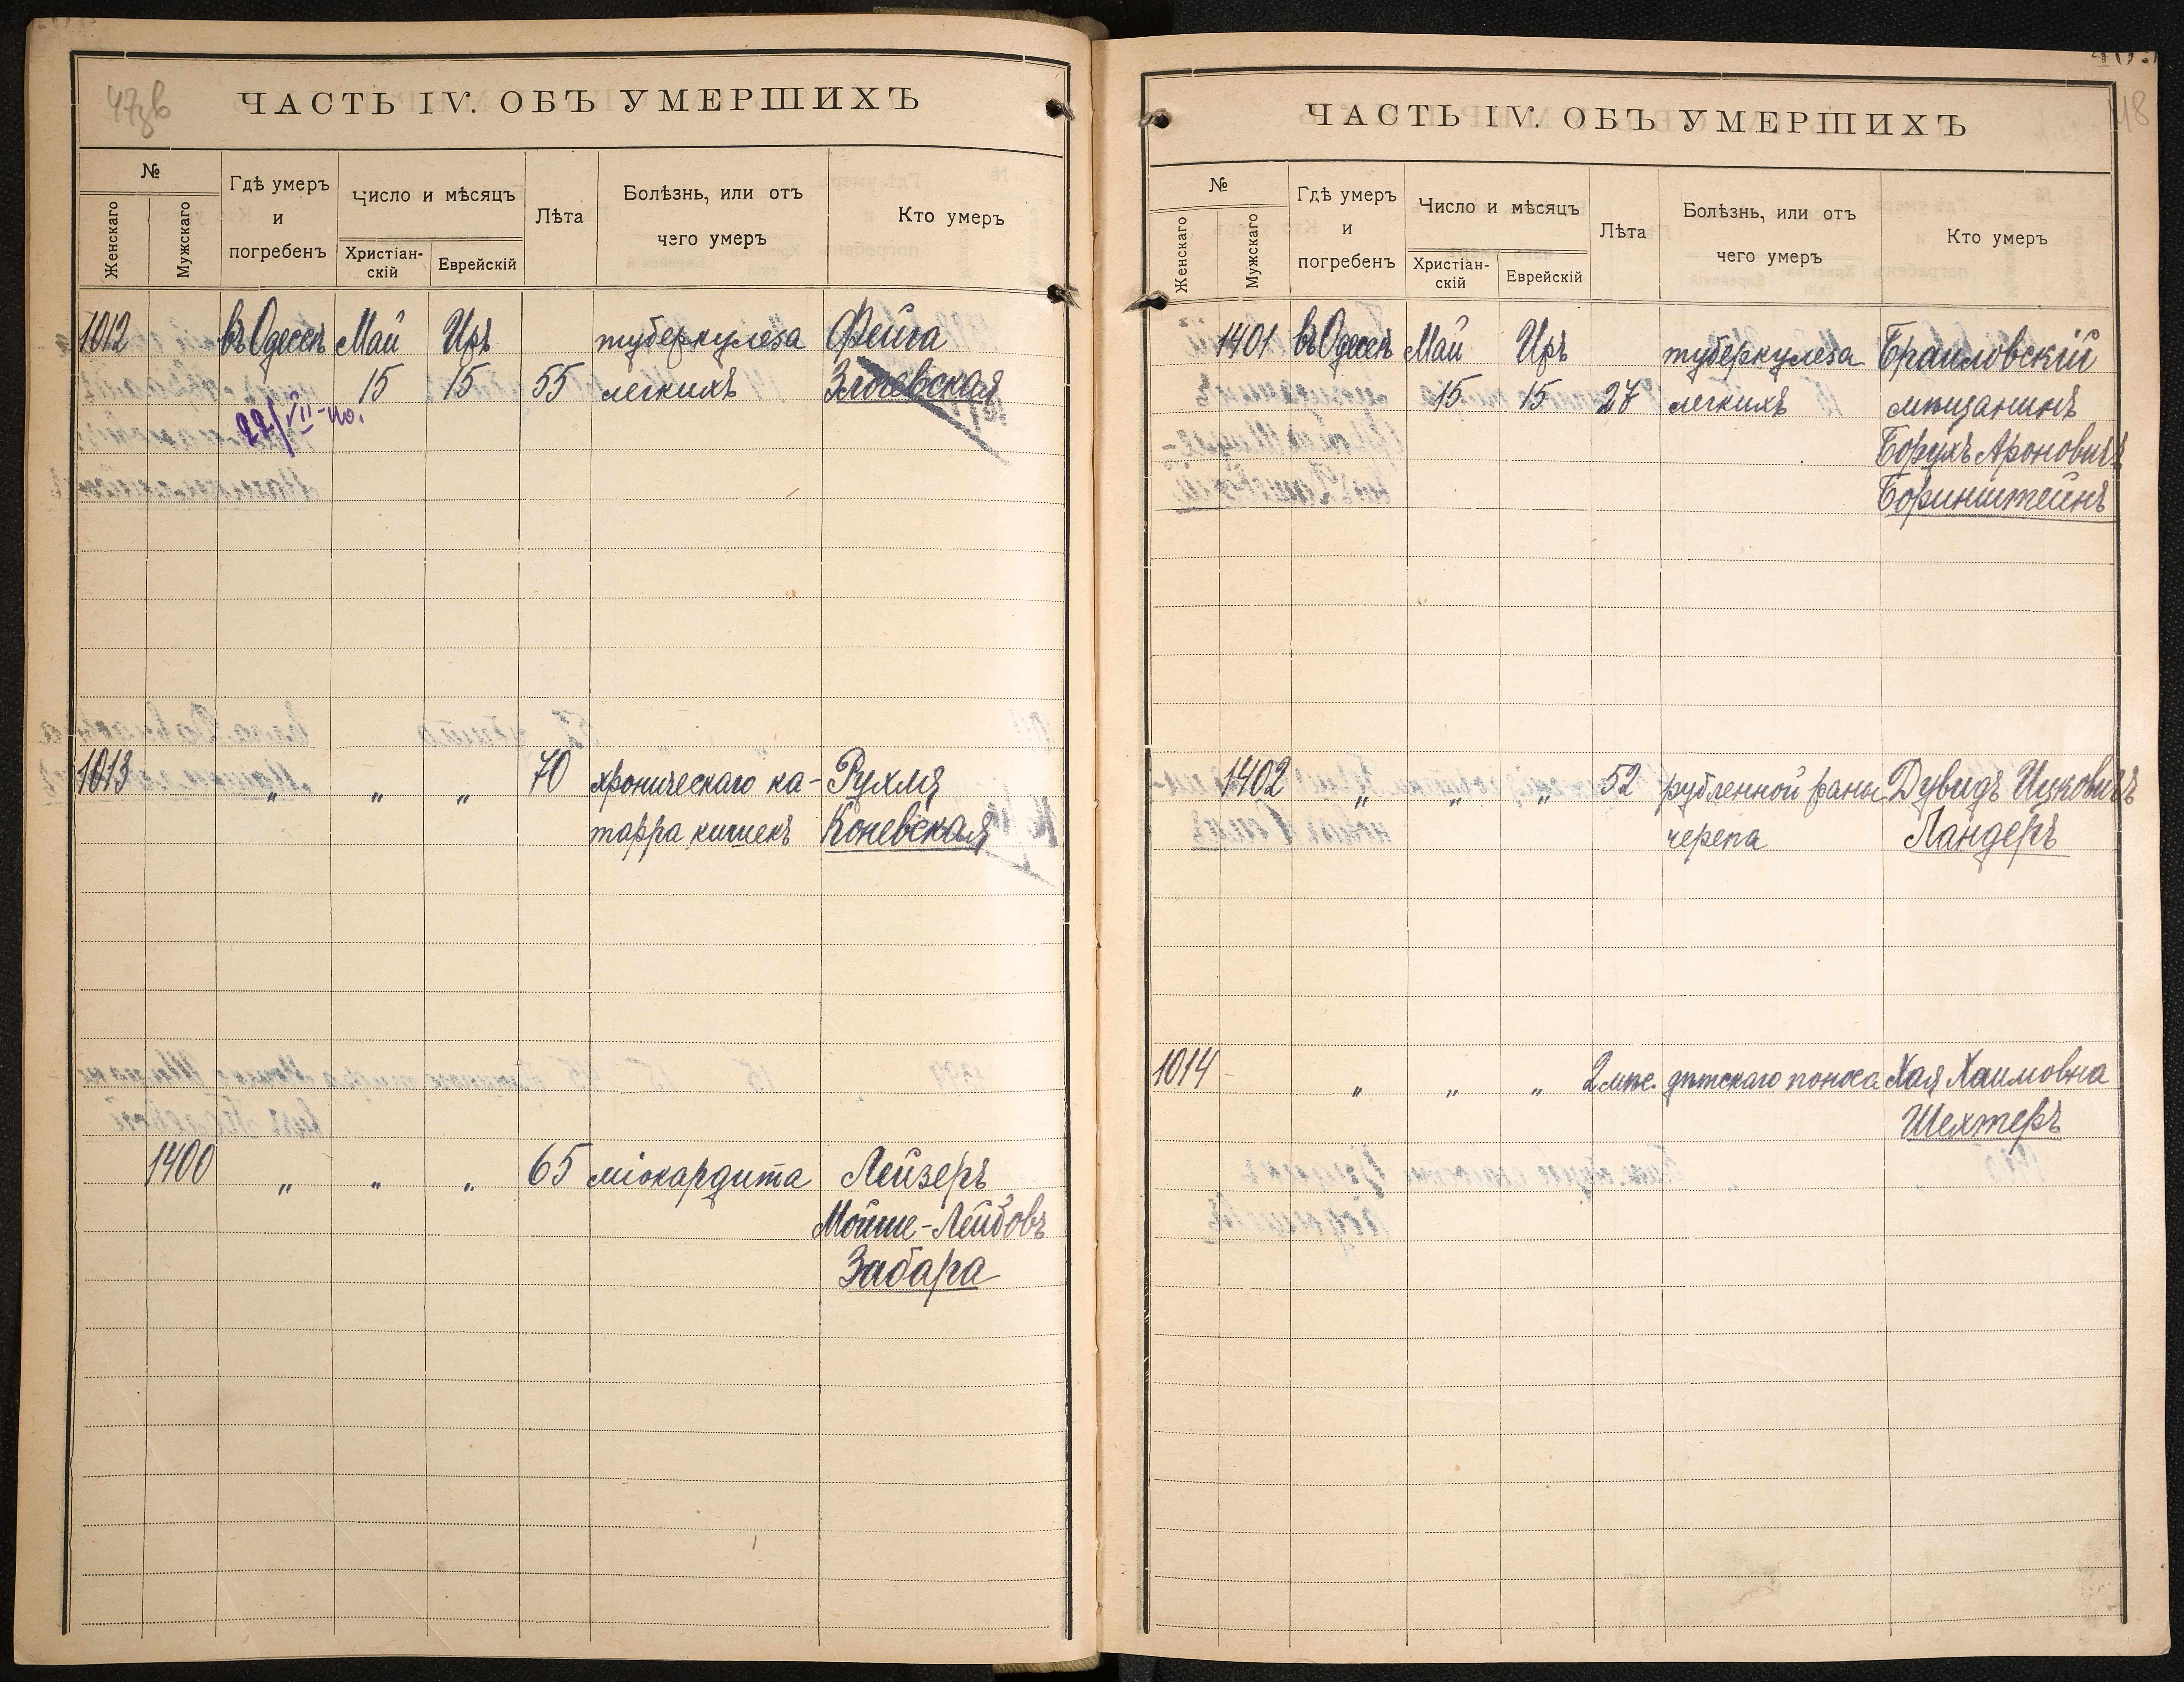 47зв
ЧАСТЬ IV. ОБЪ УМЕРШИХЪ
№
Женскаго
Мужскаго
Гдѣ умеръ
и
погребенъ
Число и мѣсяцъ
Христіан-
скій
Еврейскій
Лѣта
Болѣзнь, или отъ
чего умеръ
Кто умеръ
1012 въ Одессѣ Май Иръ туберкулеза Фейга
15 15 55 легкихъ Злочевская
22/VII-10.
1013 „ „ „ 70 хроническаго ка- Рухля
тарра кишекъ Коневская
1400 „ „ „ 65 міокардита Лейзеръ
Мойше-Лейбовъ
Забара
48
ЧАСТЬ IV. ОБЪ УМЕРШИХЪ
№
Женскаго
Мужскаго
Гдѣ умеръ
и
погребенъ
Число и мѣсяцъ
Христіан-
скій
Еврейскій
Лѣта
Болѣзнь, или отъ
чего умеръ
Кто умеръ
1401 въ Одессѣ Май Иръ туберкулеза Браиловскій
15 15 27 легкихъ мѣщанинъ
Борухъ Ароновичъ
Боринштейнъ
1402 „ „ „ 52 рубленной раны Дувидъ Ицковичъ
черепа Ландеръ
1014 „ „ „ 2 мѣс. дѣтскаго поноса Хая Хаимовна
Шехтеръ